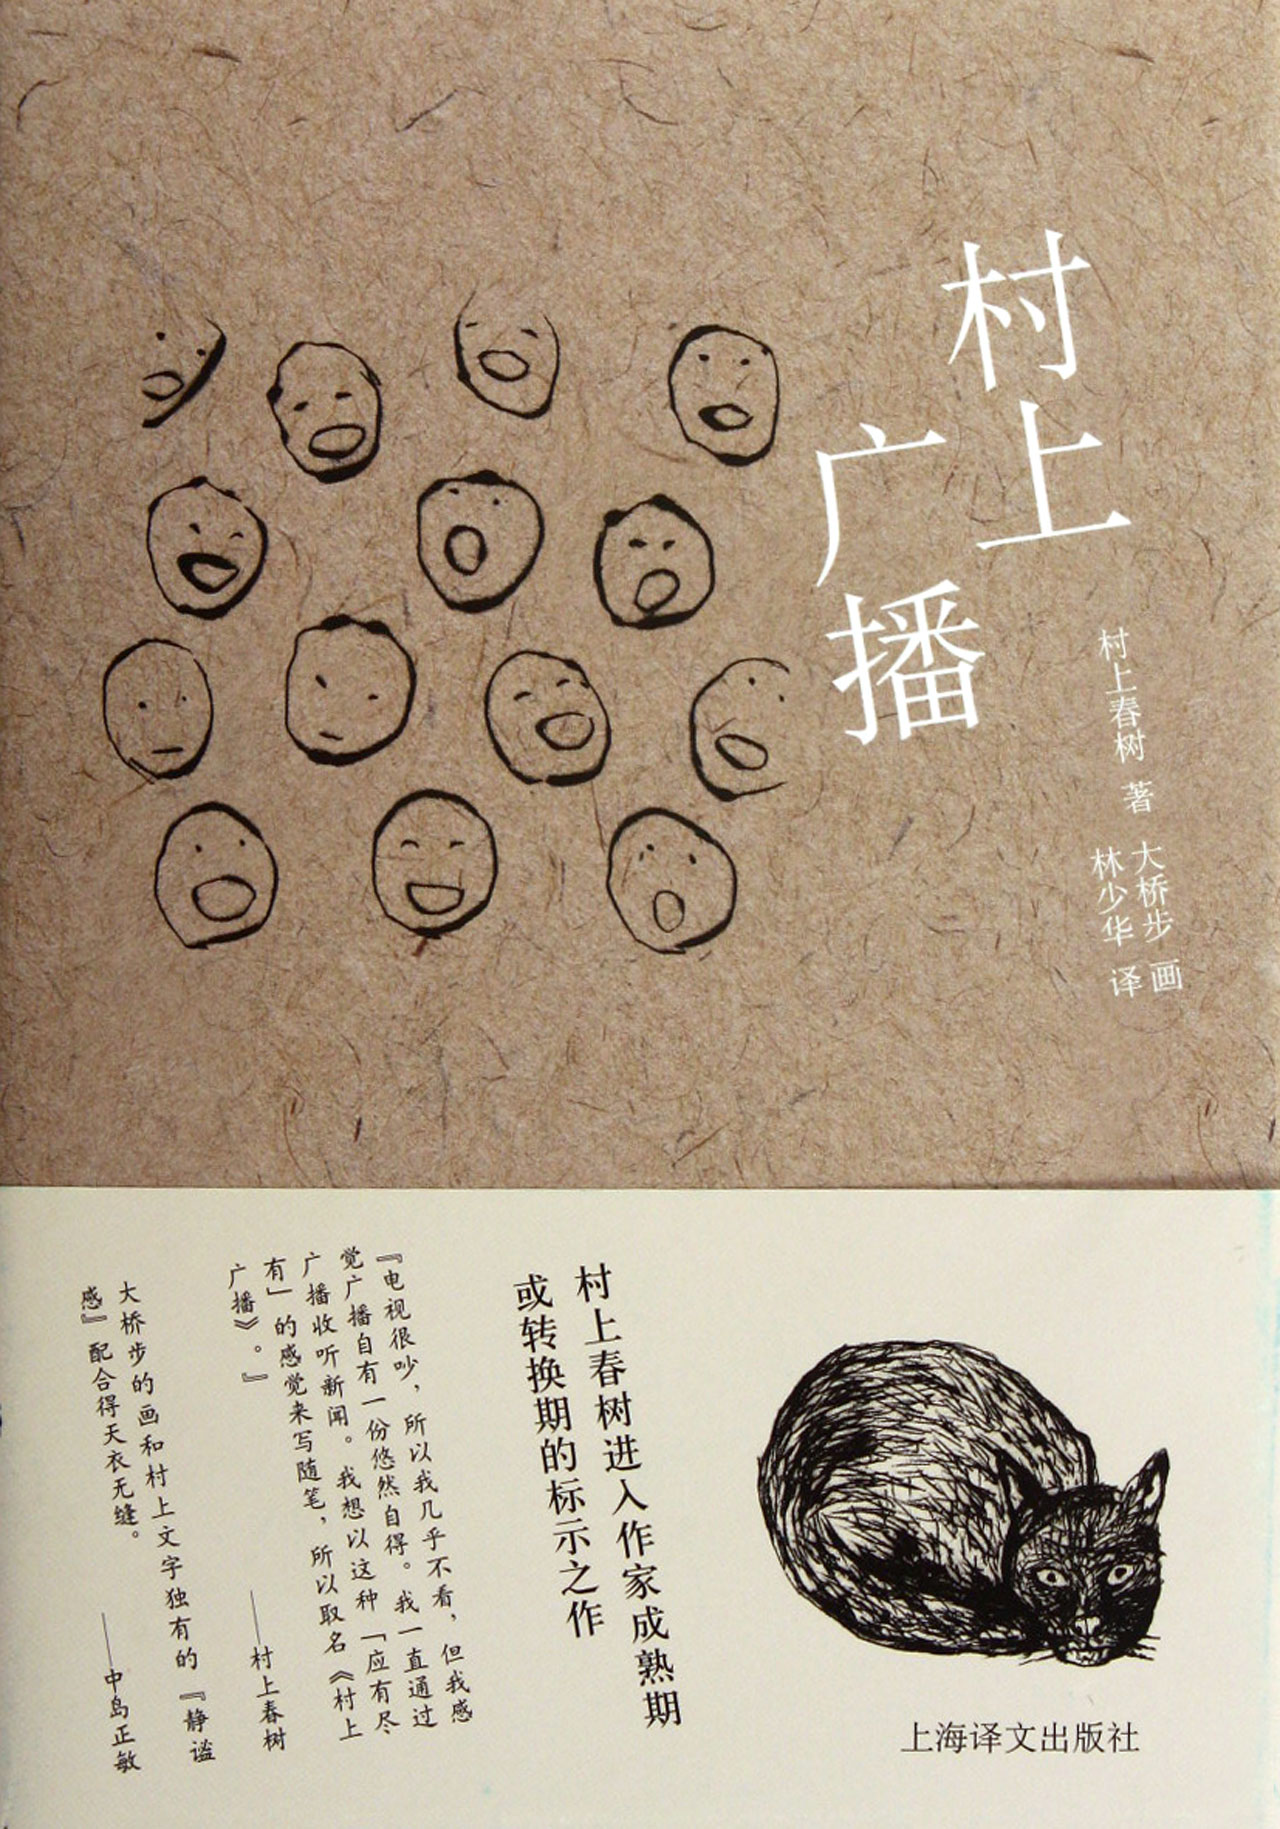 村上
广播
村上春树 著
大桥步 画
林少华 译
村上春树进入作家成熟期
或转换期的标示之作
『电视很吵，所以我几乎不看，但我感
觉广播自有一份悠然自得。我一直通过
广播收听新闻。我想以这种「应有尽
有」的感觉来写随笔，所以取名《村上
广播》。』
——村上春树
大桥步的画和村上文字独有的『静谧
感』配合得天衣无缝。
——中岛正敏
上海译文出版社